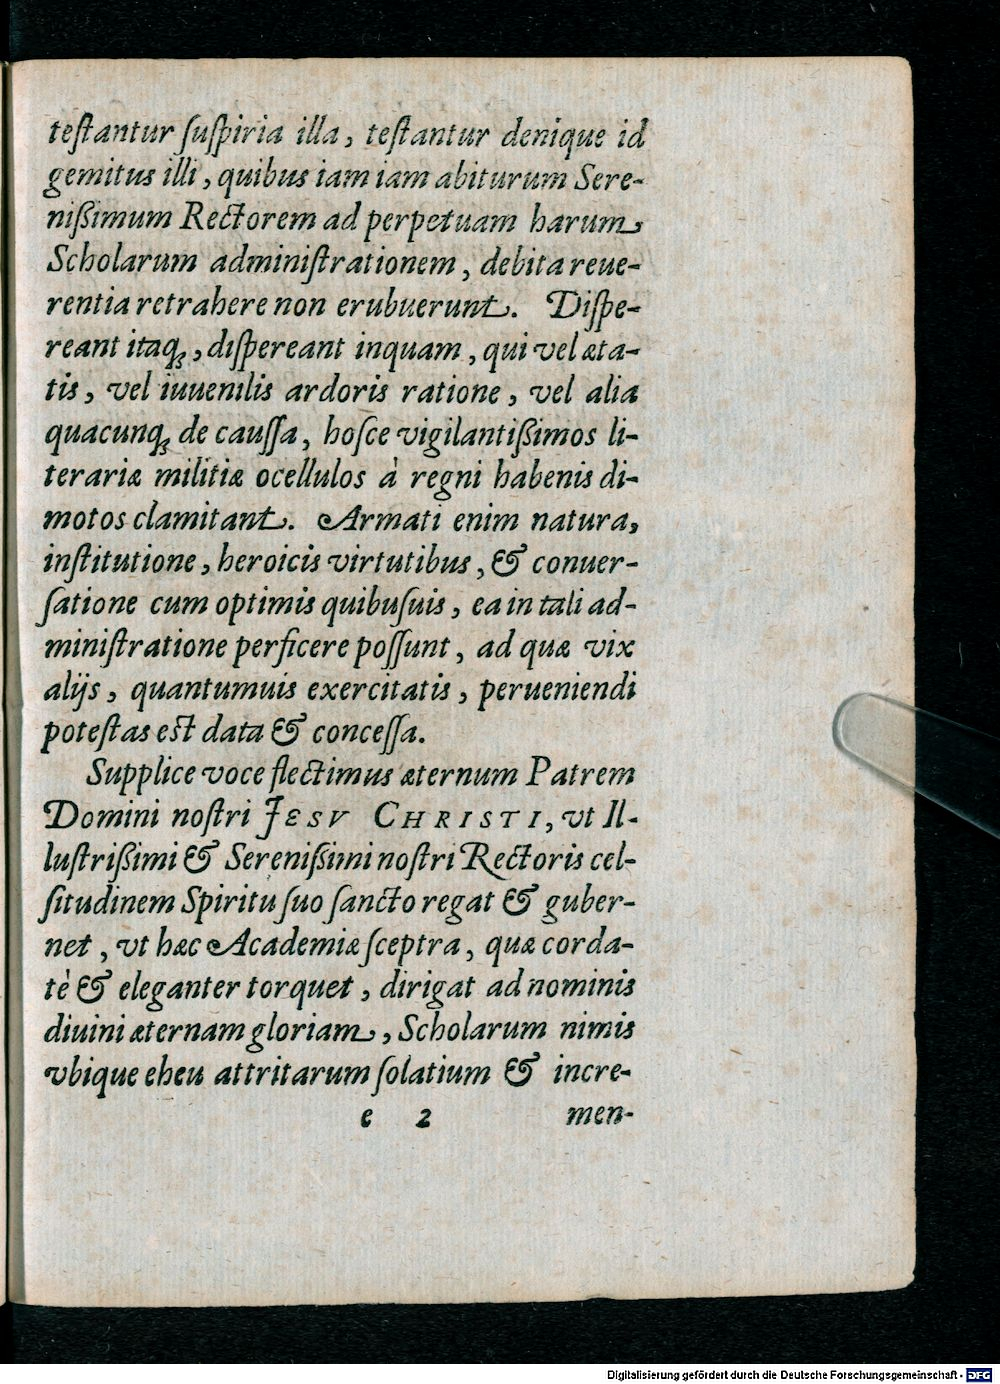 teſtantur ſuſpiria illa, teſtantur denique id
gemitus illi, quibus iam iam abiturum Sere-
niſſimum Rectorem ad perpetuam harum
Scholarum adminiſtrationem, debita reue-
rentia retrahere non erubuerunt. Diſpe-
reant itaq́ꝫ, diſpereant inquam, qui vel æta-
tis, vel iuuenilis ardoris ratione, vel alia
quacunqꝫ de cauſſa, hoſce vigilantißimos li-
terariæ militiæ ocellulos à regni habenis di-
motos clamitant. Armati enim natura,
inſtitutione, heroicis virtutibus, & conuer-
ſatione cum optimis quibuſuis, ea in tali ad-
miniſtratione perficere poſſunt, ad quæ vix
alijs, quantumuis exercitatis, perueniendi
poteſtas eſt data & conceſſa.
Supplice voce flectimus æternum Patrem
Domini noſtri JESV CHRISTI, vt Il-
luſtrißimi & Sereniſſimi noſtri Rectoris cel-
ſitudinem Spiritu ſuo ſancto regat & guber-
net, vt hæc Academiæ ſceptra, quæ corda-
tè & eleganter torquet, dirigat ad nominis
diuini æternam gloriam, Scholarum nimis
vbique eheu attritarum ſolatium & incre-
e 2 men-
Digitalisierung gefördert durch die Deutsche Forschungsgemeinschaft - DFG